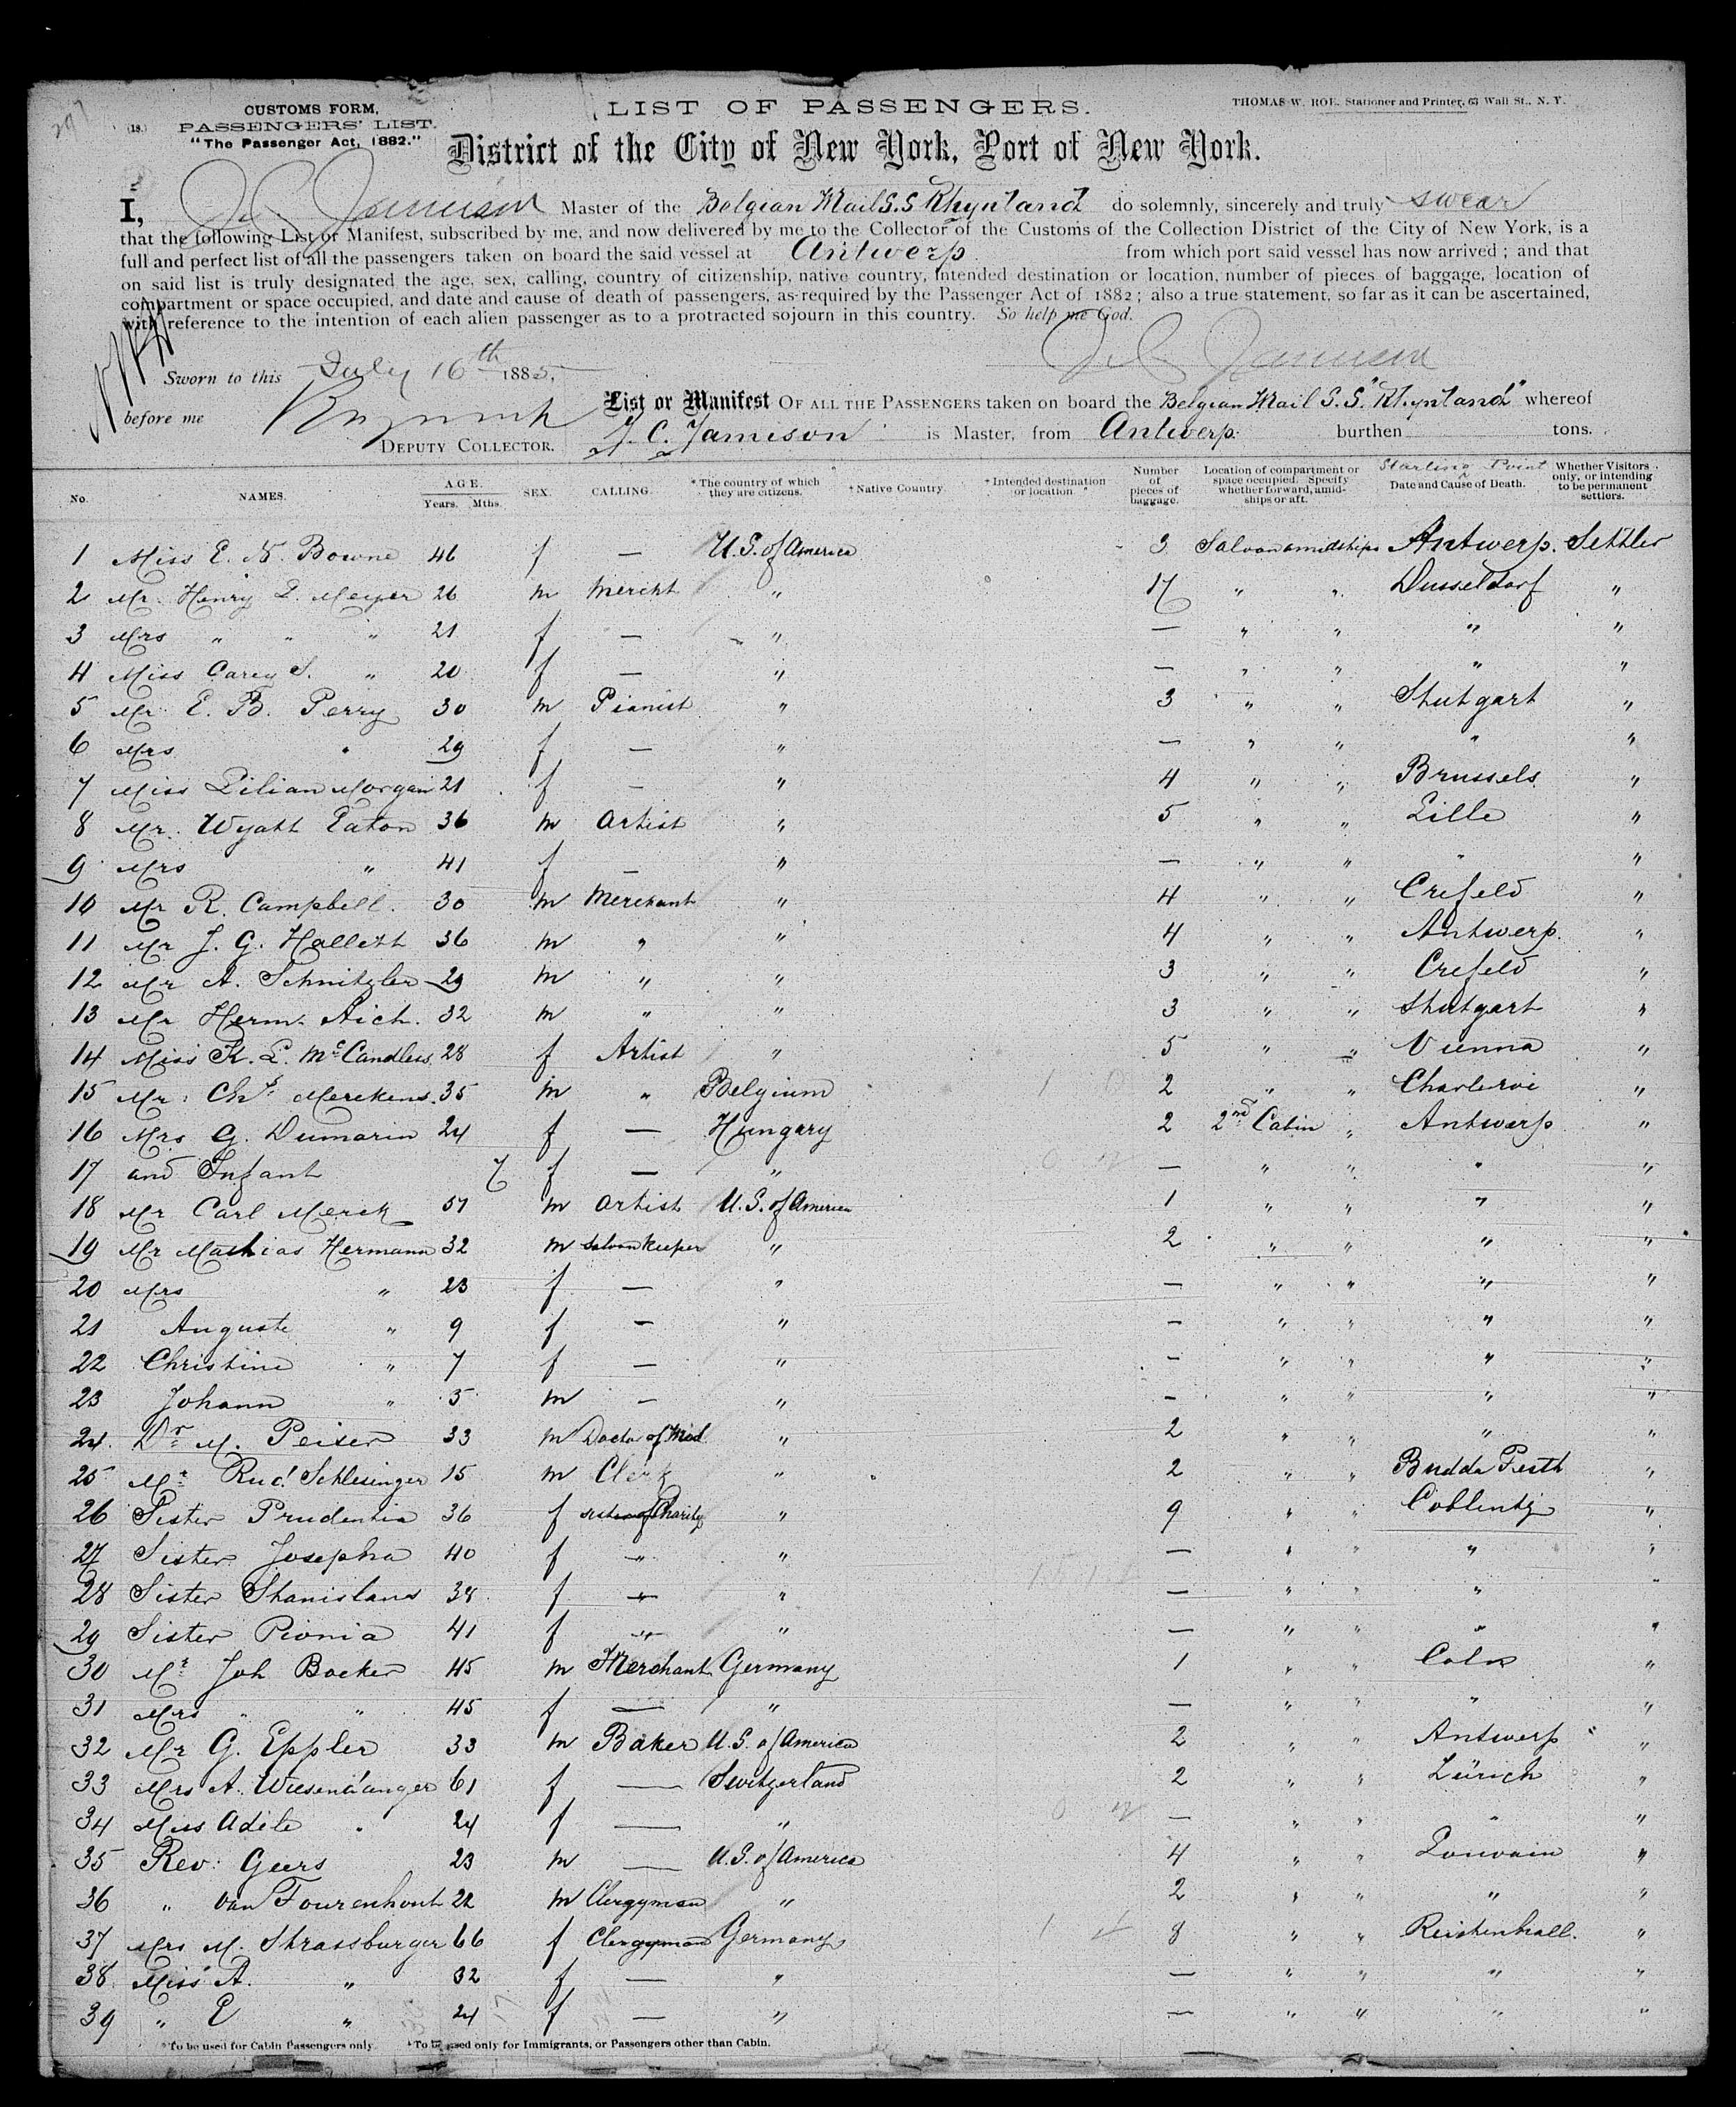 297
CUSTOMS FORM,
(18.) PASSENGERS' LIST.
"The Passenger Act, 1882."
LIST OF PASSENGERS.
THOMAS W. ROE, Stationer and Printer, 63 Wall St., N. Y.
District of the City of New York, Port of New York.
I, J C Jamison Master of the Belgian Mail S.S Rhynland do solemnly, sincerely and truly swear
that the following List or Manifest, subscribed by me, and now delivered by me to the Collector of the Customs of the Collection District of the City of New York, is a
full and perfect list of all the passengers taken on board the said vessel at Antwerp from which port said vessel has now arrived; and that
on said list is truly designated the age, sex, calling, country of citizenship, native country, intended destination or location, number of pieces of baggage, location of
compartment or space occupied, and date and cause of death of passengers, as required by the Passenger Act of 1882; also a true statement, so far as it can be ascertained,
with reference to the intention of each alien passenger as to a protracted sojourn in this country. So help me God.
J C Jamison
Sworn to this July 16th 1885,
before me
DEPUTY COLLECTOR.
List or Manifest OF ALL THE PASSENGERS taken on board the Belgian Mail S.S. "Rhynland" whereof
J. C. Jamison is Master, from Antwerp burthen tons.
No. NAMES. AGE. Years. Mths. SEX. CALLING. *The country of which they are citizens. †Native Country. †Intended destination or location. Number of pieces of baggage. Location of compartment or space occupied. Specify whether forward, amidships or aft. Starting Point Date and Cause of Death. Whether Visitors only, or intending to be permanent settlers.
1 Miss E. N. Bowne 46 f — U.S. of America 3 Saloon amidships Antwerp. Settler
2 Mr. Henry L. Meyer 26 m Mercht " 17 " " Dusseldorf "
3 Mrs " " " 21 f — " — " " " "
4 Miss Carey S. " 20 f — " — " " " "
5 Mr E. B. Perry 30 m Pianist " 3 " " Stutgart "
6 Mrs " 29 f — " — " " " "
7 Miss Lilian Morgan 21 f — " 4 " " Brussels "
8 Mr. Wyatt Eaton 36 m Artist " 5 " " Lille "
9 Mrs " 41 f — " — " " " "
10 Mr R. Campbell. 30 m Merchant " 4 " " Crefeld "
11 Mr J. G. Hallett 36 m " " 4 " " Antwerp. "
12 Mr A. Schnitzler 29 m " " 3 " " Crefeld "
13 Mr Herm. Aich. 32 m " " 3 " " Stutgart "
14 Miss K. L. McCandless 28 f Artist " 5 " " Vienna "
15 Mr. Chs Merckens. 35 m " Belgium 2 " " Charleroi "
16 Mrs G. Dumarin 24 f — Hungary 2 2nd Cabin " Antwerp "
17 and Infant 7 f — " — " " " "
18 Mr Carl Merck 57 m Artist U.S. of America 1 " " " "
19 Mr Mathias Hermann 32 m Saloonkeeper " 2 " " " "
20 Mrs " 23 f — " — " " " "
21 Auguste " 9 f — " — " " " "
22 Christine " 7 f — " — " " " "
23 Johann " 5 m — " — " " " "
24. Dr M. Peiser 33 m Doctor of Med. " 2 " " " "
25 Mr Rud. Schlesinger 15 m Clerk " 2 " " Budda Pesth "
26 Sister Prudentia 36 f Sister of Charity " 9 " " Coblentz "
27 Sister Josepha 40 f " " — " " " "
28 Sister Stanislaus 38 f " " — " " " "
29 Sister Pionia 41 f " " — " " " "
30 Mr Joh Backer 45 m Merchant Germany 1 " " Coln "
31 Mrs " " 45 f — " — " " " "
32 Mr G. Eppler 33 m Baker U.S. of America 2 " " Antwerp "
33 Mrs A. Wiesendanger 61 f — Switzerland 2 " " Zürich "
34 Miss Adile " 24 f — " — " " " "
35 Rev: Geers 23 m — U.S. of America 4 " " Louvain "
36 " Van Fourenhout 22 m Clergyman " 2 " " " "
37 Mrs M. Strassburger 66 f Clergyman Germany 8 " " Reichenhall. "
38 Miss A. " 32 f — " — " " " "
39 " E " 24 f — " — " " " "
*To be used for Cabin Passengers only. †To be used only for Immigrants, or Passengers other than Cabin.